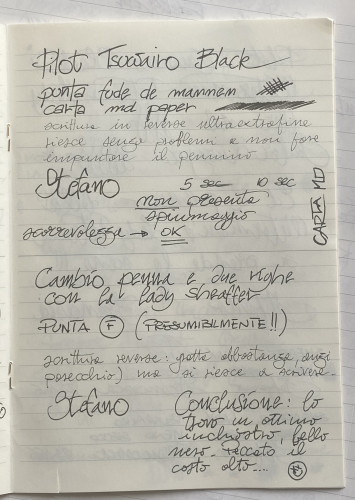 Pilot Tsowairo Black
punta fude de mannem
carta md paper
scrittura in reverse ultraextrafine
riesce senza problemi e non fare
impuntare il pennino
Stefano
5 sec 10 sec
non presenta
spiumaggio
scorrevolezza → OK
CARTA MD
Cambio penna e due righe
con la lady sheaffer
PUNTA F (PRESUMIBILMENTE!!)
scrittura reverse: gratta abbastanza, anzi
parecchio) ma si riesce a scrivere
Stefano
Conclusione: lo
trovo un ottimo
inchiostro, bello
nero. Peccato il
costo alto....